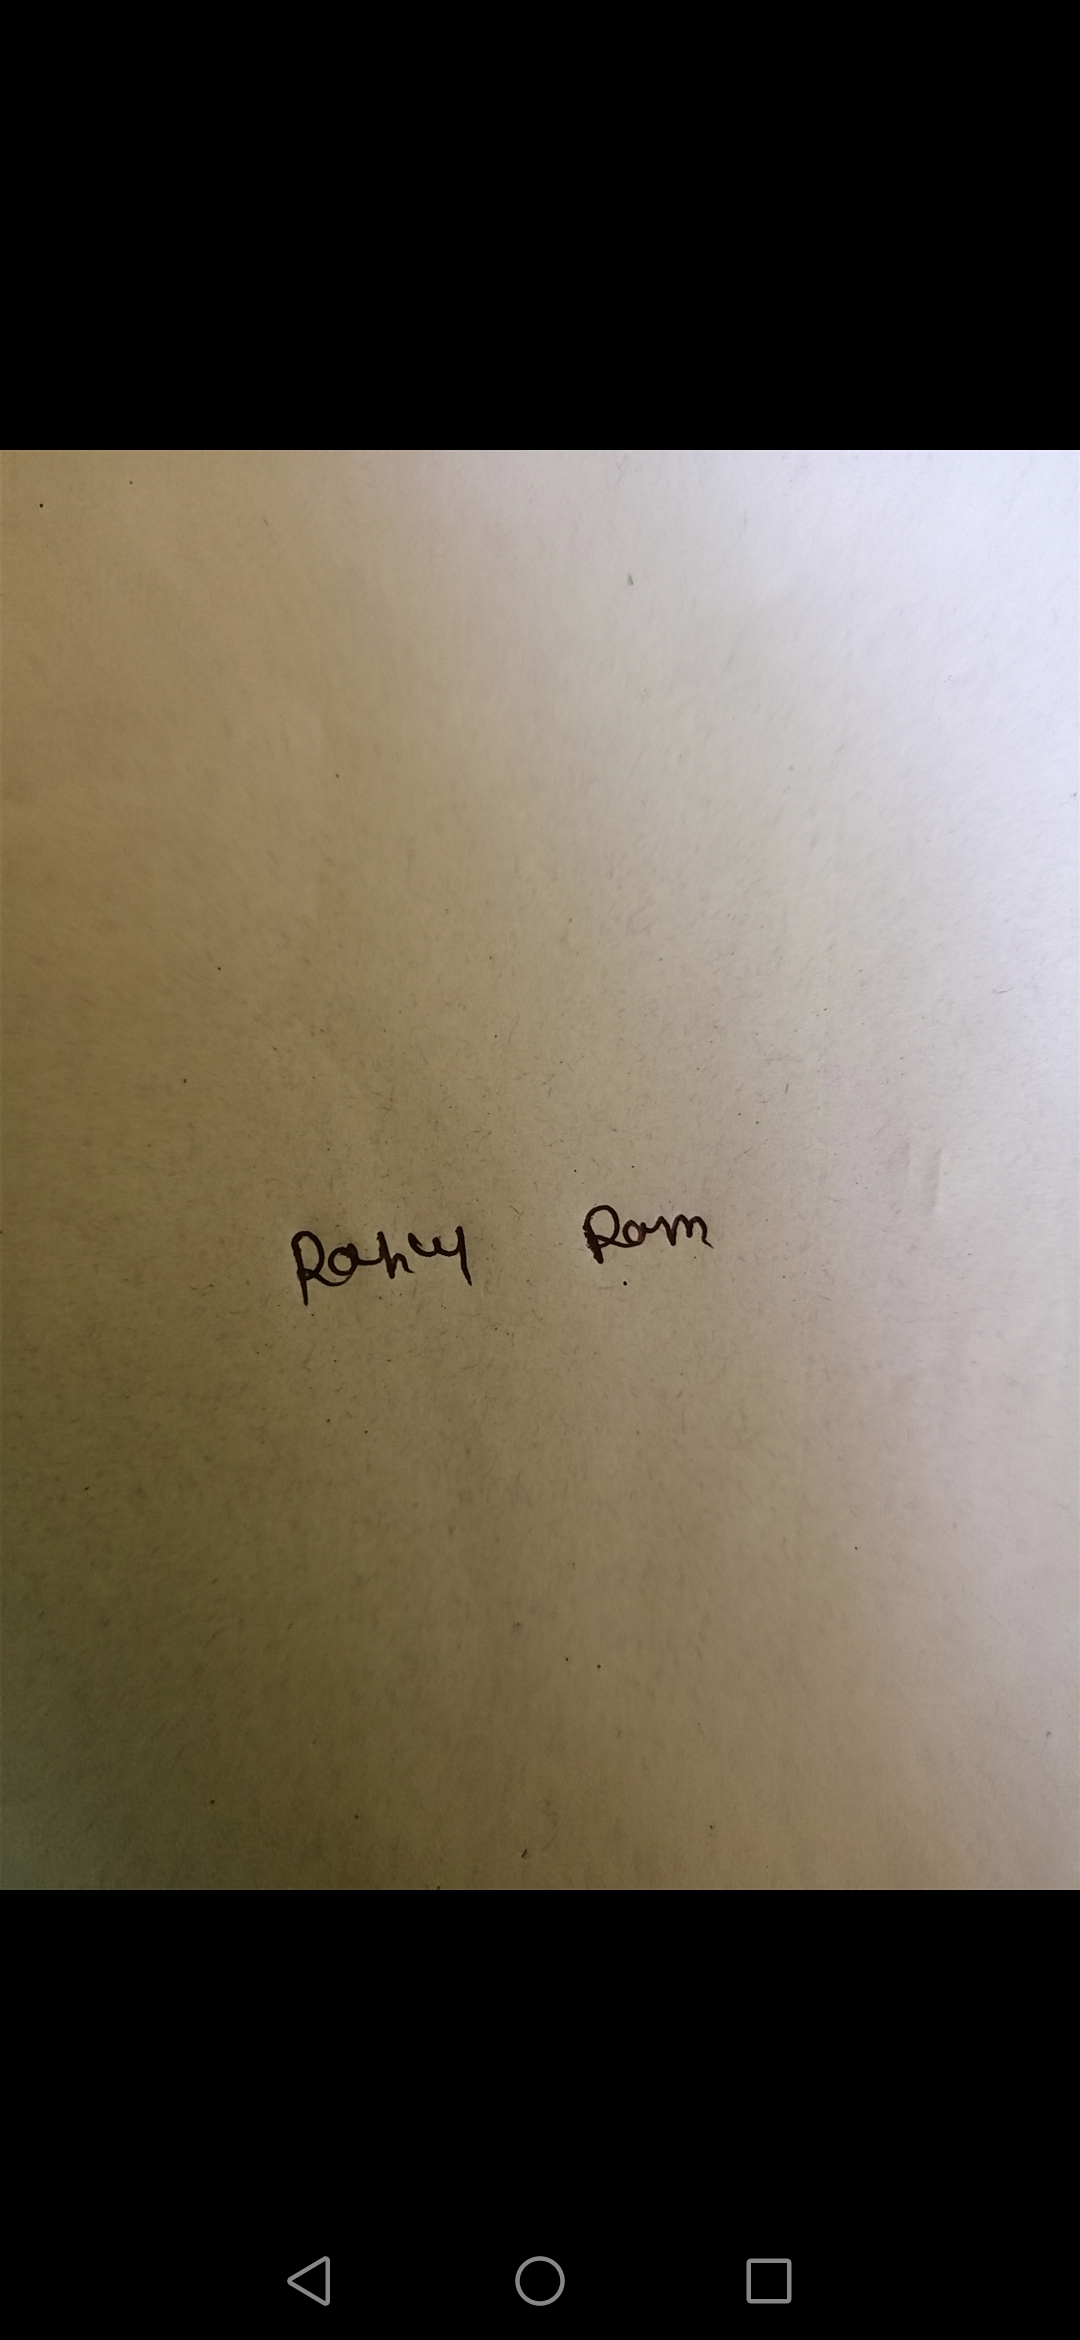 Rahul Ram